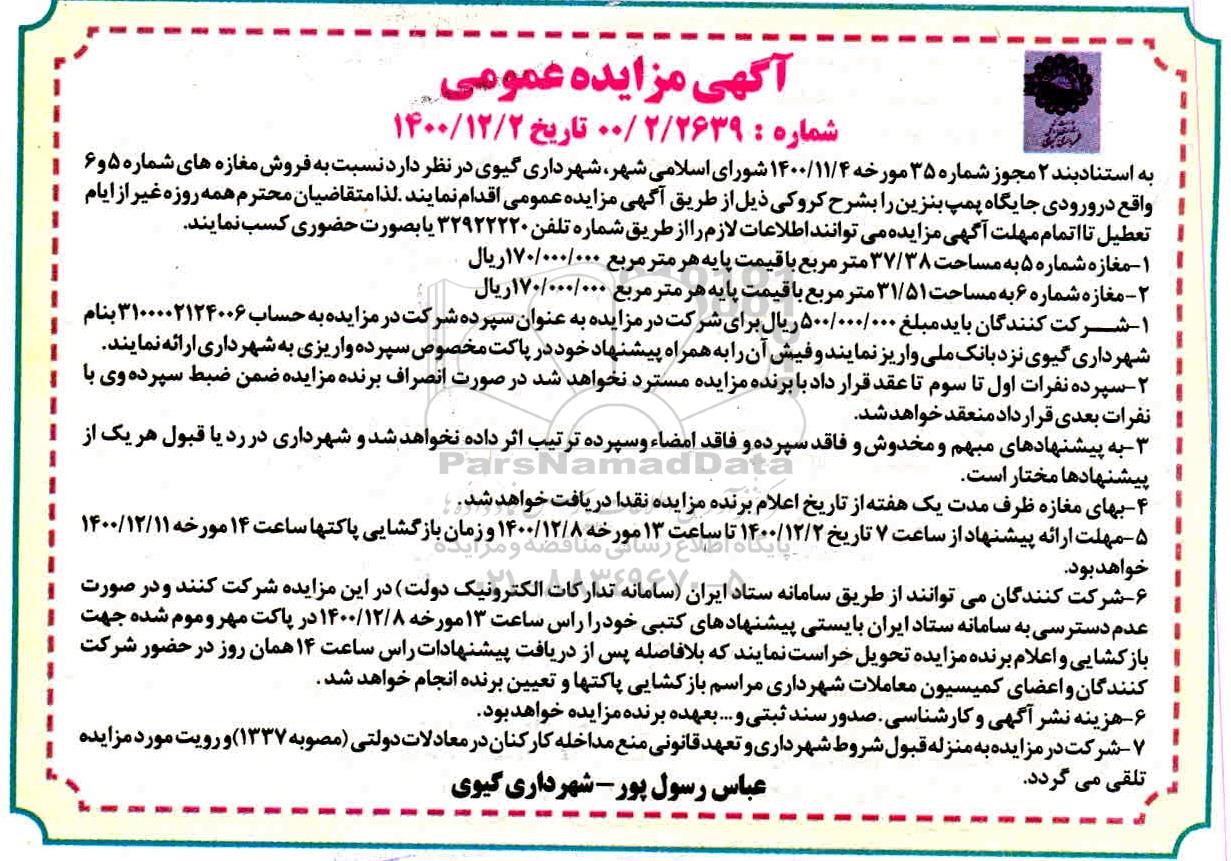 آگهی مزایده عمومی
شماره : ۰۰/۲/۲۶۳۹ تاریخ ۱۴۰۰/۱۲/۲
به استناد بند ۲ مجوز شماره ۳۵ مورخه ۱۴۰۰/۱۱/۴ شورای اسلامی شهر، شهرداری گیوی در نظر دارد نسبت به فروش مغازه های شماره ۵ و ۶
واقع در ورودی جایگاه پمپ بنزین را بشرح کروکی ذیل از طریق آگهی مزایده عمومی اقدام نمایند. لذا متقاضیان محترم همه روزه غیر از ایام
تعطیل تا اتمام مهلت آگهی مزایده می توانند اطلاعات لازم را از طریق شماره تلفن ۳۲۹۲۲۲۲۰ یا بصورت حضوری کسب نمایند.
۱-مغازه شماره ۵ به مساحت ۳۷/۳۸ متر مربع با قیمت پایه هر متر مربع ۱۷۰/۰۰۰/۰۰۰ ریال
۲-مغازه شماره ۶ به مساحت ۳۱/۵۱ متر مربع با قیمت پایه هر متر مربع ۱۷۰/۰۰۰/۰۰۰ ریال
۱-شـــرکت کنندگان باید مبلغ ۵۰۰/۰۰۰/۰۰۰ ریال برای شرکت در مزایده به عنوان سپرده شرکت در مزایده به حساب ۳۱۰۰۰۰۲۱۲۴۰۰۶ بنام
شهرداری گیوی نزد بانک ملی واریز نمایند و فیش آن را به همراه پیشنهاد خود در پاکت مخصوص سپرده واریزی به شهرداری ارائه نمایند.
۲-سپرده نفرات اول تا سوم تا عقد قرار داد با برنده مزایده مسترد نخواهد شد در صورت انصراف برنده مزایده ضمن ضبط سپرده وی با
نفرات بعدی قرار داد منعقد خواهد شد.
۳-به پیشنهادهای مبهم و مخدوش و فاقد سپرده و فاقد امضاء وسپرده ترتیب اثر داده نخواهد شد و شهرداری در رد یا قبول هر یک از
پیشنهادها مختار است.
۴-بهای مغازه ظرف مدت یک هفته از تاریخ اعلام برنده مزایده نقدا دریافت خواهد شد.
۵-مهلت ارائه پیشنهاد از ساعت ۷ تاریخ ۱۴۰۰/۱۲/۲ تا ساعت ۱۳ مورخه ۱۴۰۰/۱۲/۸ و زمان بازگشایی پاکتها ساعت ۱۴ مورخه ۱۴۰۰/۱۲/۱۱
خواهد بود.
۶-شرکت کنندگان می توانند از طریق سامانه ستاد ایران (سامانه تدارکات الکترونیک دولت) در این مزایده شرکت کنند و در صورت
عدم دسترسی به سامانه ستاد ایران بایستی پیشنهادهای کتبی خود را راس ساعت ۱۳ مورخه ۱۴۰۰/۱۲/۸ در پاکت مهر و موم شده جهت
بازکشایی و اعلام برنده مزایده تحویل حراست نمایند که بلافاصله پس از دریافت پیشنهادات راس ساعت ۱۴ همان روز در حضور شرکت
کنندگان و اعضای کمیسیون معاملات شهرداری مراسم بازکشایی پاکتها و تعیین برنده انجام خواهد شد .
۶-هزینه نشر آگهی و کارشناسی .صدور سند ثبتی و ...بعهده برنده مزایده خواهد بود.
۷-شرکت در مزایده به منزله قبول شروط شهرداری و تعهد قانونی منع مداخله کارکنان در معادلات دولتی (مصوبه ۱۳۳۷) و رویت مورد مزایده
تلقی می گردد.
عباس رسول پور - شهرداری گیوی
ParsNamadData
پایگاه اطلاع رسانی مناقصه و مزایده
۰۲۱-۸۸۳۴۹۶۷۰-۵